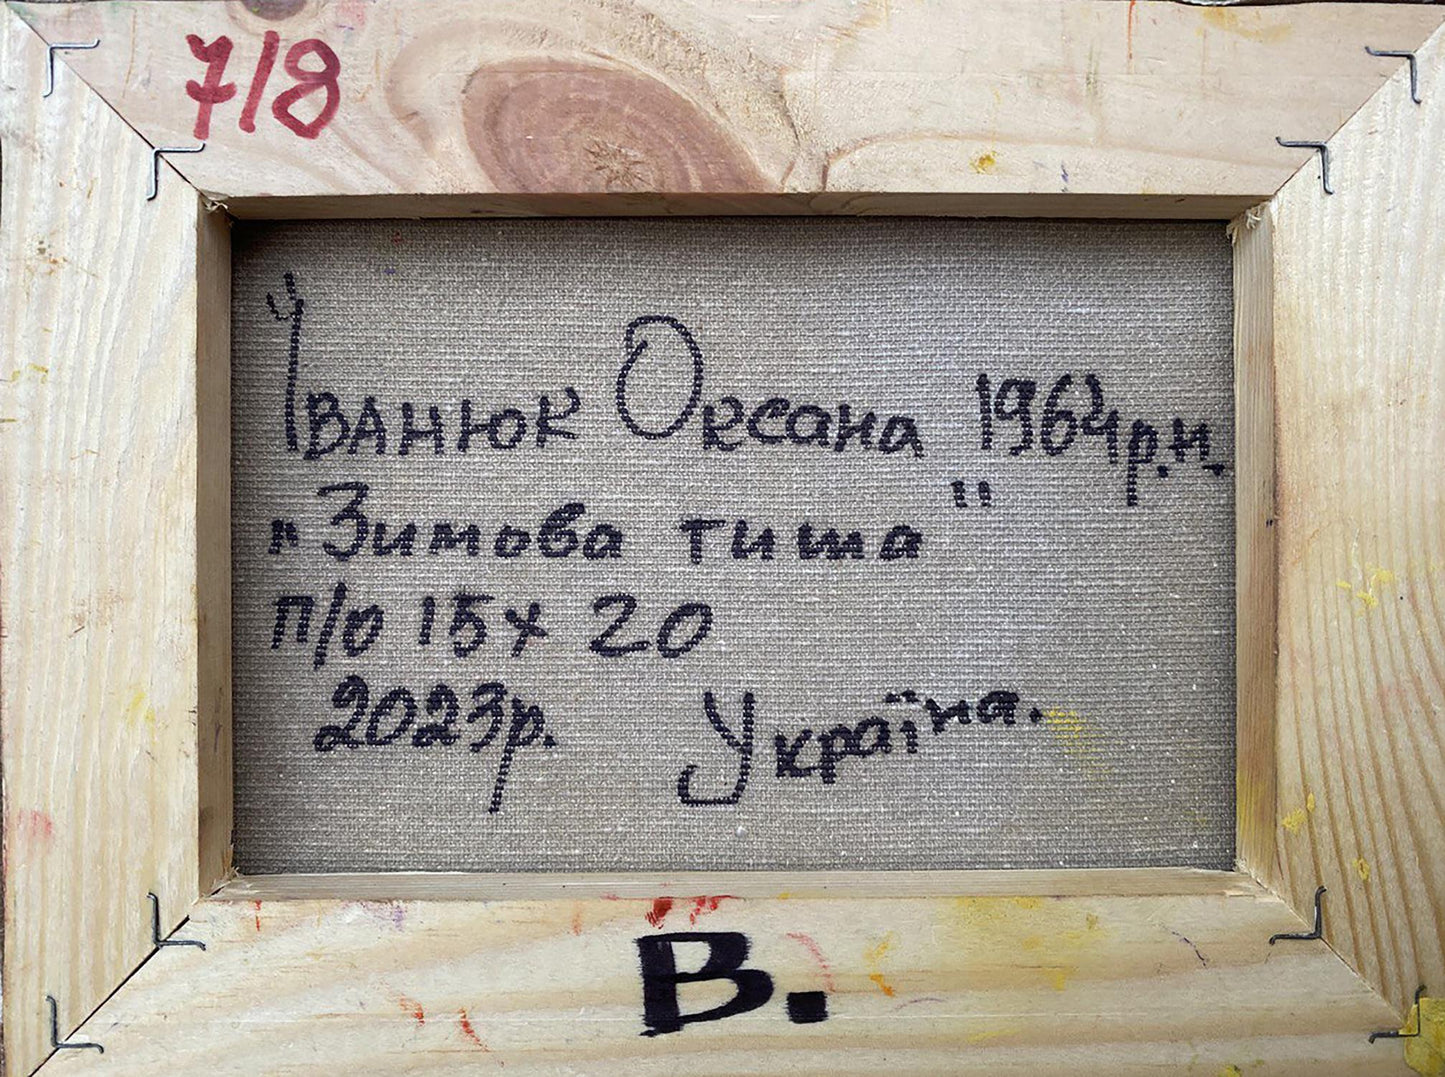 7/8
Іванюк Оксана 1964р.н.
"Зимова тиша"
п/о 15х20
2023р. Україна.
В.